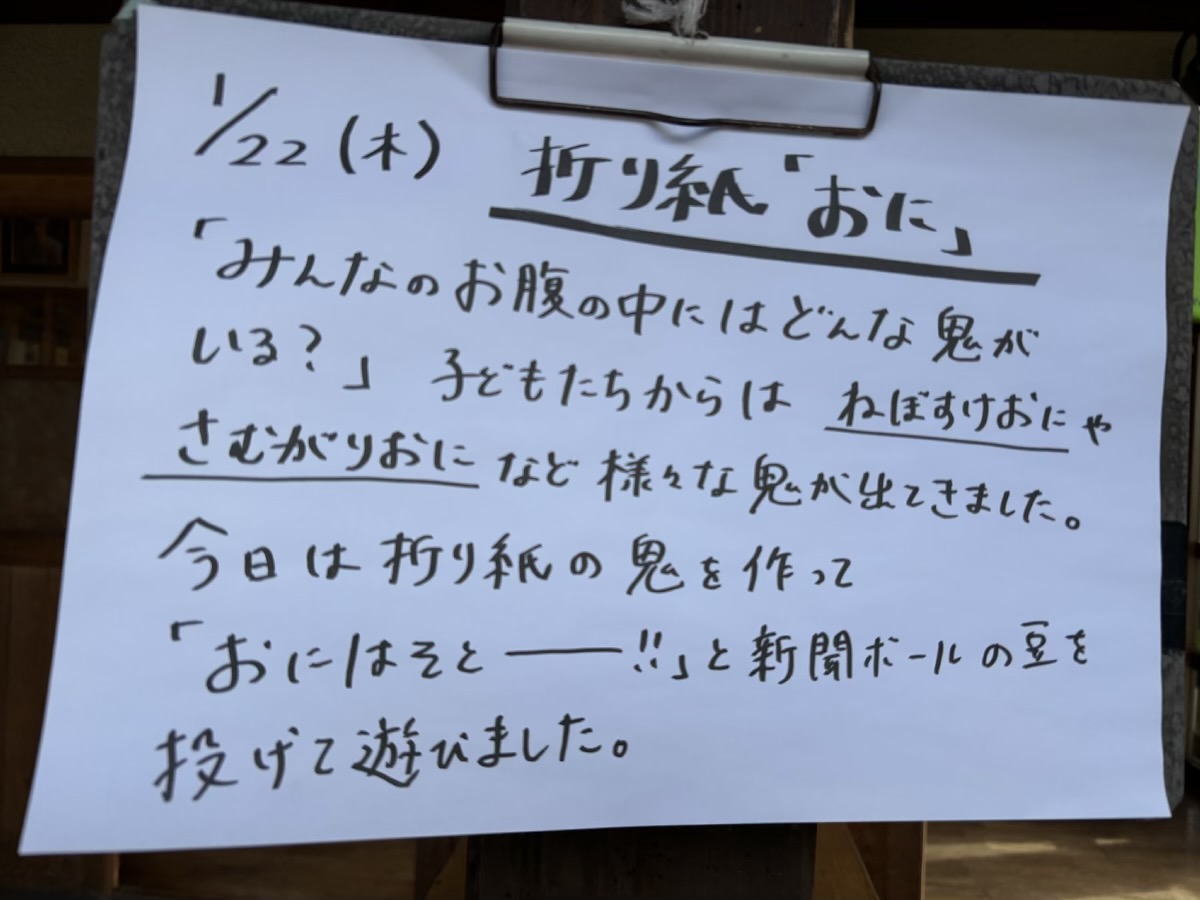 1/22(木) 折り紙「おに」
「みんなのお腹の中にはどんな鬼が
いる?」子どもたちからは ねぼすけおにや
さむがりおになど様々な鬼が出てきました。
今日は折り紙の鬼を作って
「おにはそと――!!」と新聞ボールの豆を
投げて遊びました。